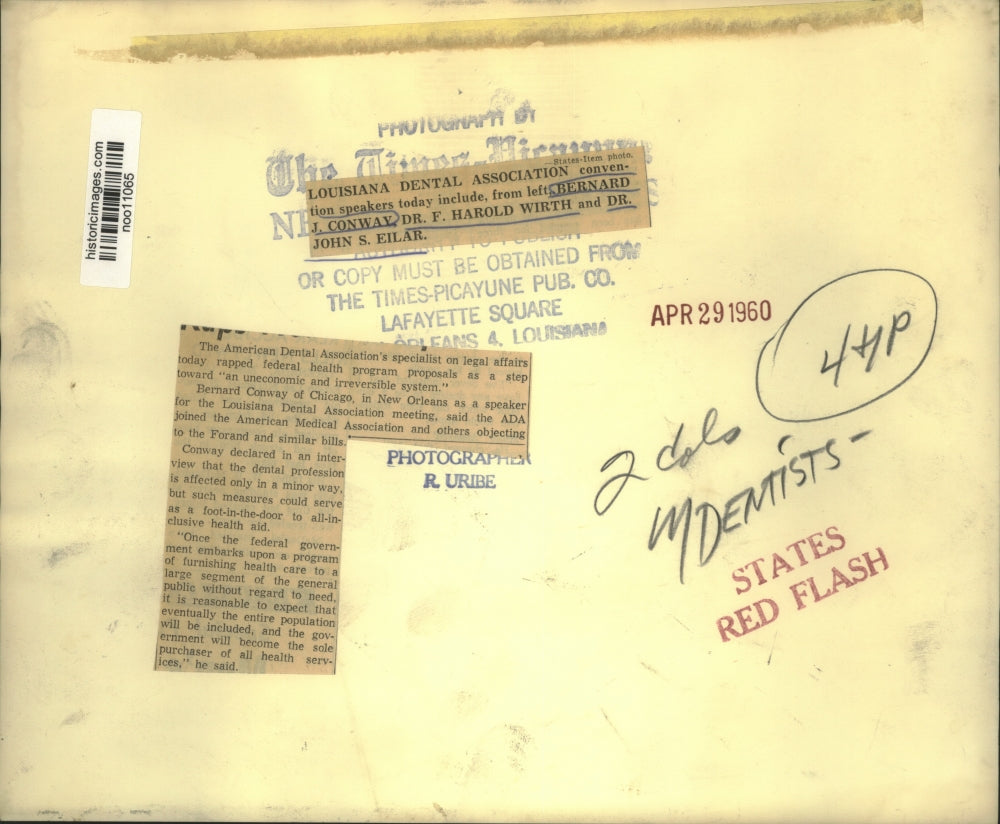 historicimages.com
noo11065
PHOTOGRAPH BY
The Times-Picayune
NE
S
—States-Item photo.
LOUISIANA DENTAL ASSOCIATION conven-
tion speakers today include, from left, BERNARD
J. CONWAY, DR. F. HAROLD WIRTH and DR.
JOHN S. EILAR.
AUTHORITY TO PUBLISH
OR COPY MUST BE OBTAINED FROM
THE TIMES-PICAYUNE PUB. CO.
LAFAYETTE SQUARE
ORLEANS 4, LOUISIANA
APR 29 1960
4HP
2 cols
MDENTISTS-
STATES
RED FLASH
The American Dental Association's specialist on legal affairs
today rapped federal health program proposals as a step
toward "an uneconomic and irreversible system."
Bernard Conway of Chicago, in New Orleans as a speaker
for the Louisiana Dental Association meeting, said the ADA
joined the American Medical Association and others objecting
to the Forand and similar bills.
Conway declared in an inter-
view that the dental profession
is affected only in a minor way,
but such measures could serve
as a foot-in-the-door to all-in-
clusive health aid.
"Once the federal govern-
ment embarks upon a program
of furnishing health care to a
large segment of the general
public without regard to need,
it is reasonable to expect that
eventually the entire population
will be included, and the gov-
ernment will become the sole
purchaser of all health serv-
ices," he said.
PHOTOGRAPHER
R. URIBE